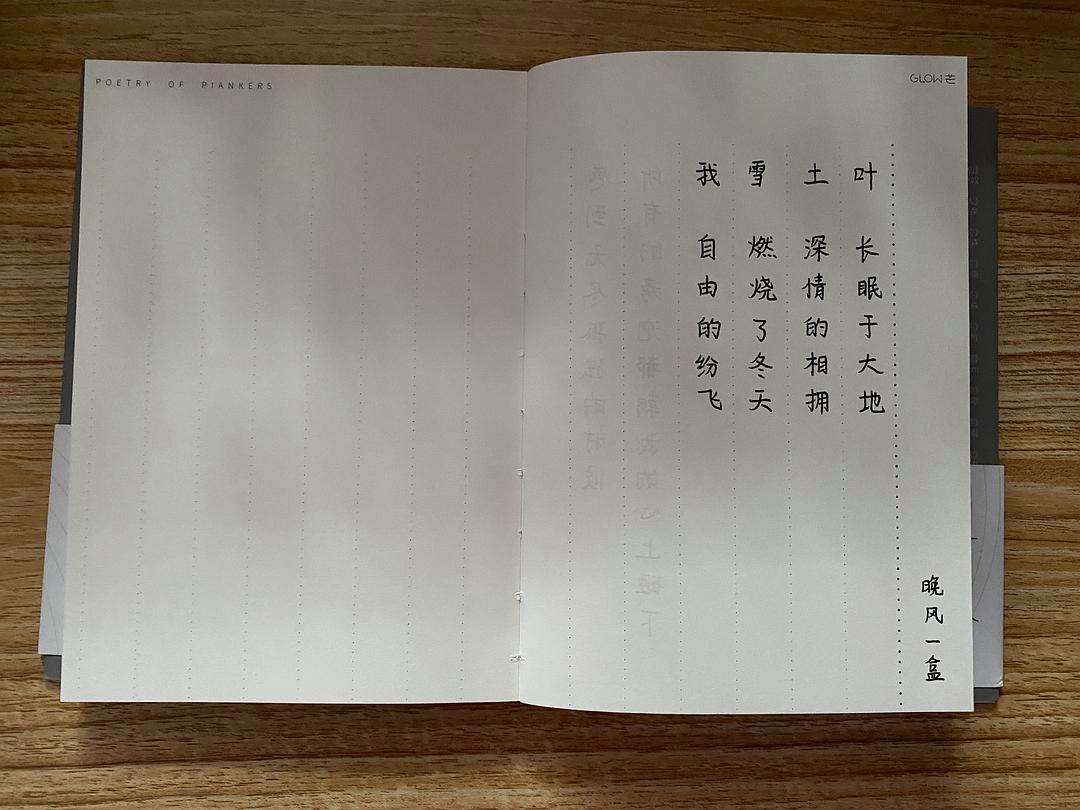 POETRY OF PIANKERS
GLOW芒
叶 长眠于大地
土 深情的相拥
雪 燃烧了冬天
我 自由的纷飞
晚风一盒